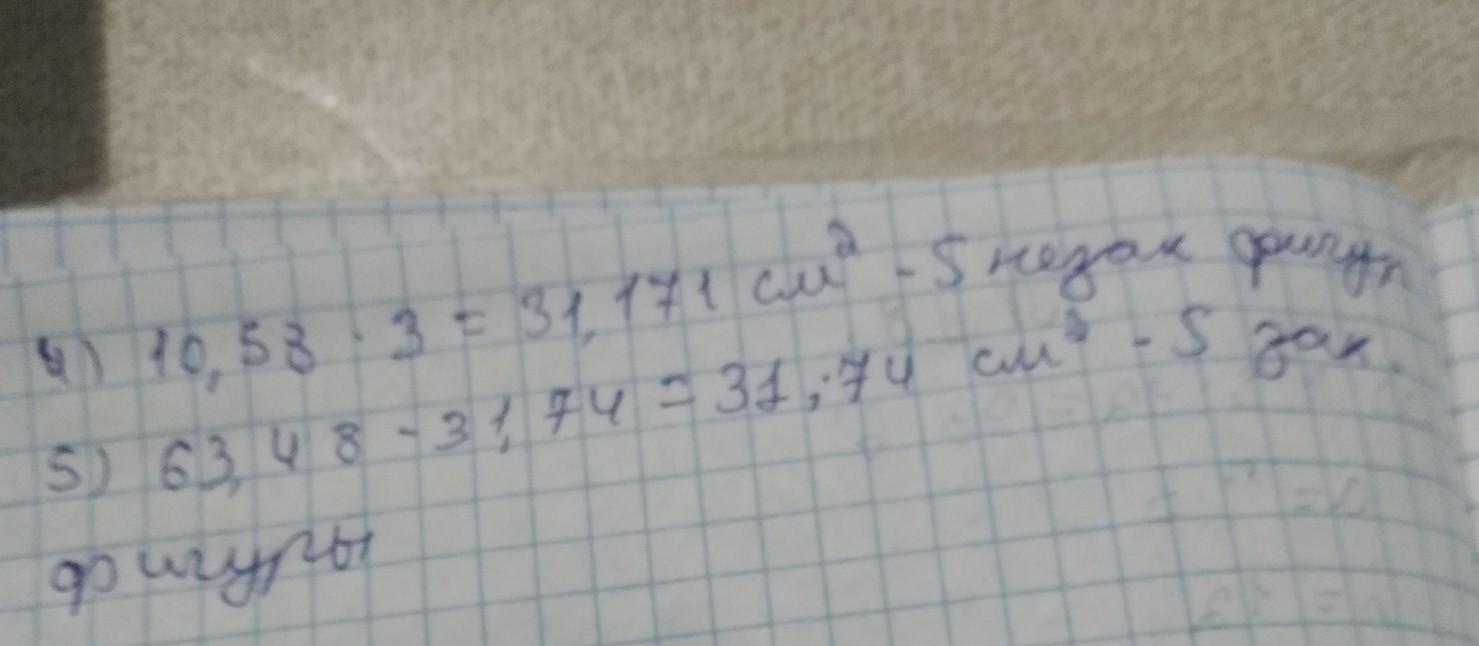 4) 10,58 · 3 = 31,171 см² - S незак фигур
5) 63,48 - 31,74 = 31,74 см² - S зак.
фигуры